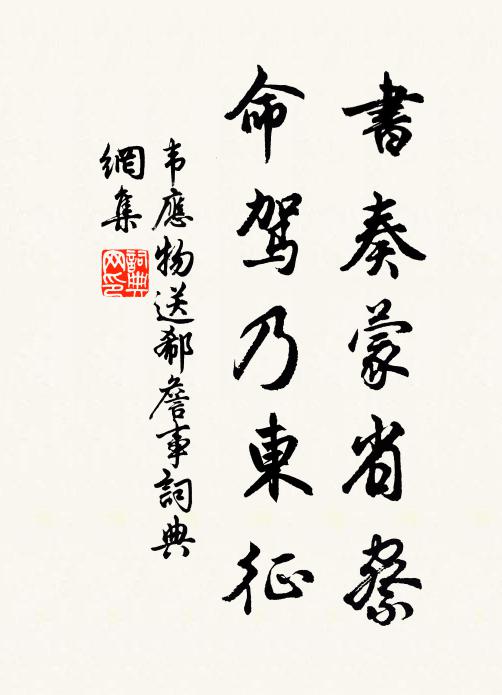 書奏蒙省察
命驾乃東征
韦應物送郗詹事詞典
網集
詞典
网印